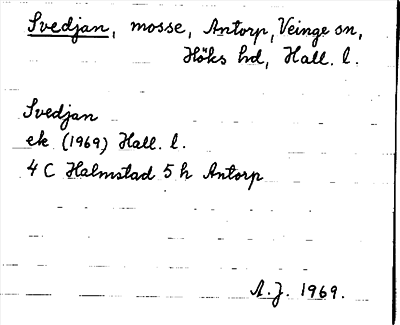 Svedjan, mosse, Antorp, Veinge sn,
Höks hd, Hall. l.
Svedjan
ek (1969) Hall. l.
4 C Halmstad 5 h Antorp
A.J. 1969.